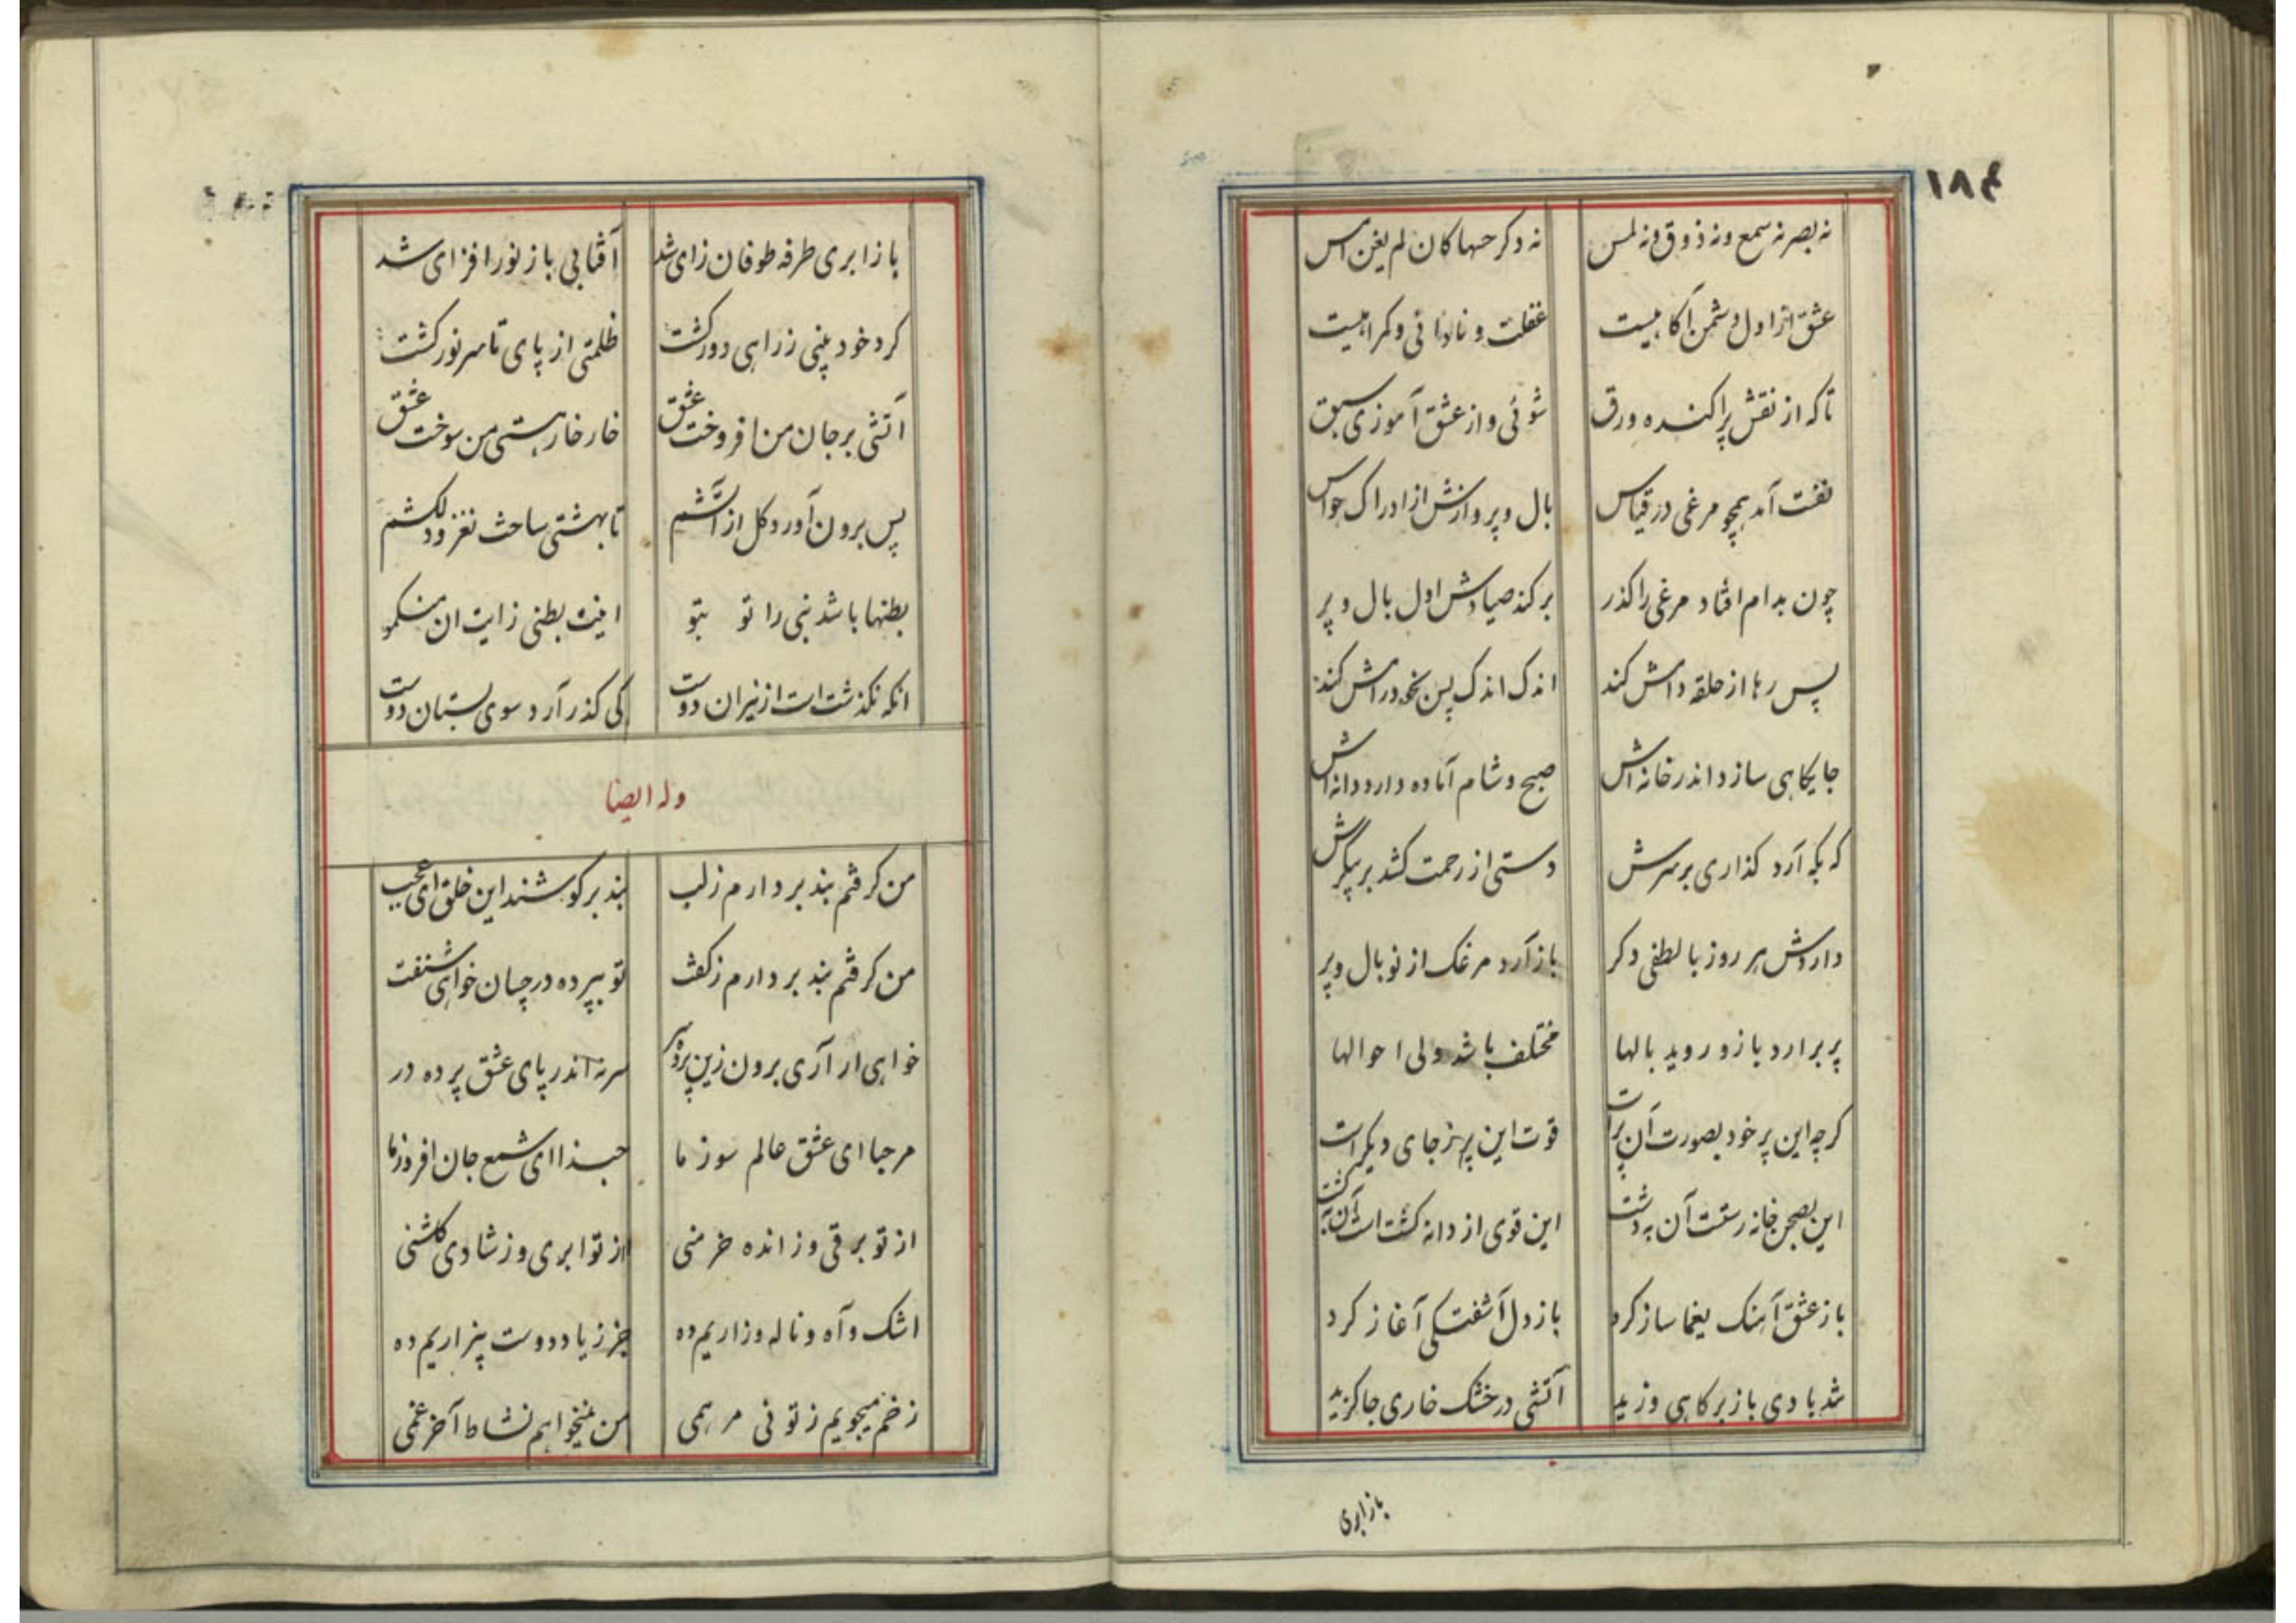 ۱۸۴
نه بصر نه سمع و نه ذوق و نه لمس نه دکر حسها کان لم یغن امس
عشق از اول دشمن آکاهیست غفلت و نادانی و کمراهیست
تا که از نقش پراکنده ورق شوئی و از عشق آموزی سبق
نفت آمد همچو مرغی در قیاس بال و پر وازنش از ادراک حواس
چون بدام افتاد مرغی را کذر برکند صیادش اول بال و پر
پس رها از حلقه دامش کند اندک اندک پس بخود رامش کند
جایکاهی سازد اندر خانه اش صبح و شام آماده دارد دانه اش
که بکه آرد کذاری بر سرش دستی از رحمت کشد بر پیکرش
داردش هر روز با لطفی دکر باز آرد مرغک از نو بال و پر
پر برارد باز و روید بالها مختلف باشد ولی احوالها
کرچه این پر خود بصورت آن پر است قوت این پر ز جای دیکر است
این بصحن خانه رست آن به دشت این قوی از دانه کشت است آن به کشت
باز عشق آهنک یغما ساز کرد باز دل آشفتکی آغاز کرد
شد بادی باز بر کاهی وزید آتشی در خشک خاری جا کزید
باز ابری
باز ابری طرفه طوفان زای شد آفتابی باز نور افزای شد
کرد خود بینی ز راهی دور کشت ظلمتی از پای تا سر نور کشت
آتشی بر جان من افروخت عشق خار خار هستی من سوخت عشق
پس برون آورد کل از آتشم تا بهشتی ساحت نغز و دلکشم
بطنها باشد نبی را تو بتو اینت بطنی زایت ان منکمو
انکه نکذشت است از نیران دوست کی کذر آرد سوی بستان دوست
وله ایضا
من کرفتم بند بردارم ز لب بند بر کوشند این خلق ای عجب
من کرفتم بند بردارم ز کفت تو بپرده در چسان خواهی شنفت
خواهی ار آری برون زین پرده سر سر نه اندر پای عشق پرده در
مرحبا ای عشق عالم سوز ما حبذا ای شمع جان افروز ما
از تو برقی وز انده خرمنی از تو ابری وز شادی کلشنی
اشک و آه و ناله و زاریم ده جز ز یاد دوست بیزاریم ده
زخم میجویم ز تو نی مرهمی من نمیخواهم نشاط آخر غمی